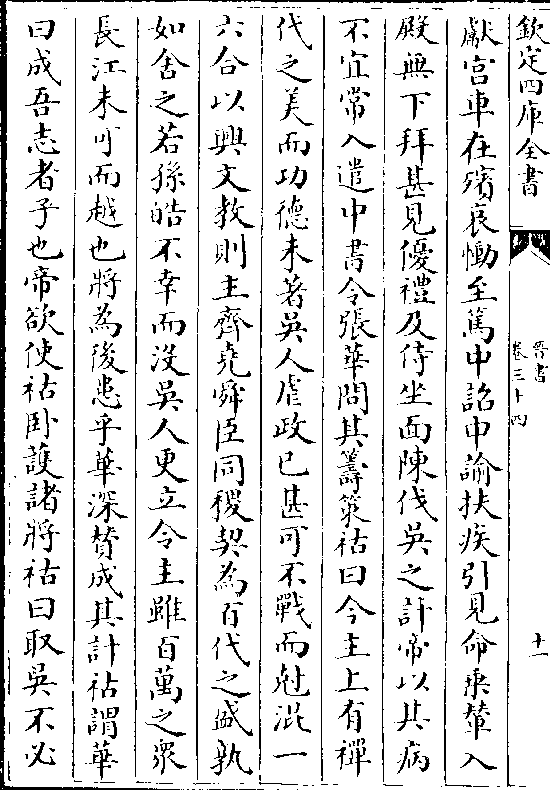 欽定四庫全書
晉書
卷三十四
十一
獻宮車在殯哀慟至篤中詔申諭扶疾引見命乘輦入
殿無下拜甚見優禮及侍坐面陳伐吳之計帝以其病
不宜常入遣中書令張華問其籌策祜曰今主上有禪
代之美而功德未著吳人虐政已甚可不戰而尅混一
六合以興文教則主齊堯舜臣同稷契為百代之盛孰
如舍之若孫皓不幸而沒吳人更立令主雖百萬之衆
長江未可而越也將為後患乎華深贊成其計祜謂華
曰成吾志者子也帝欲使祜卧護諸將祜曰取吳不必